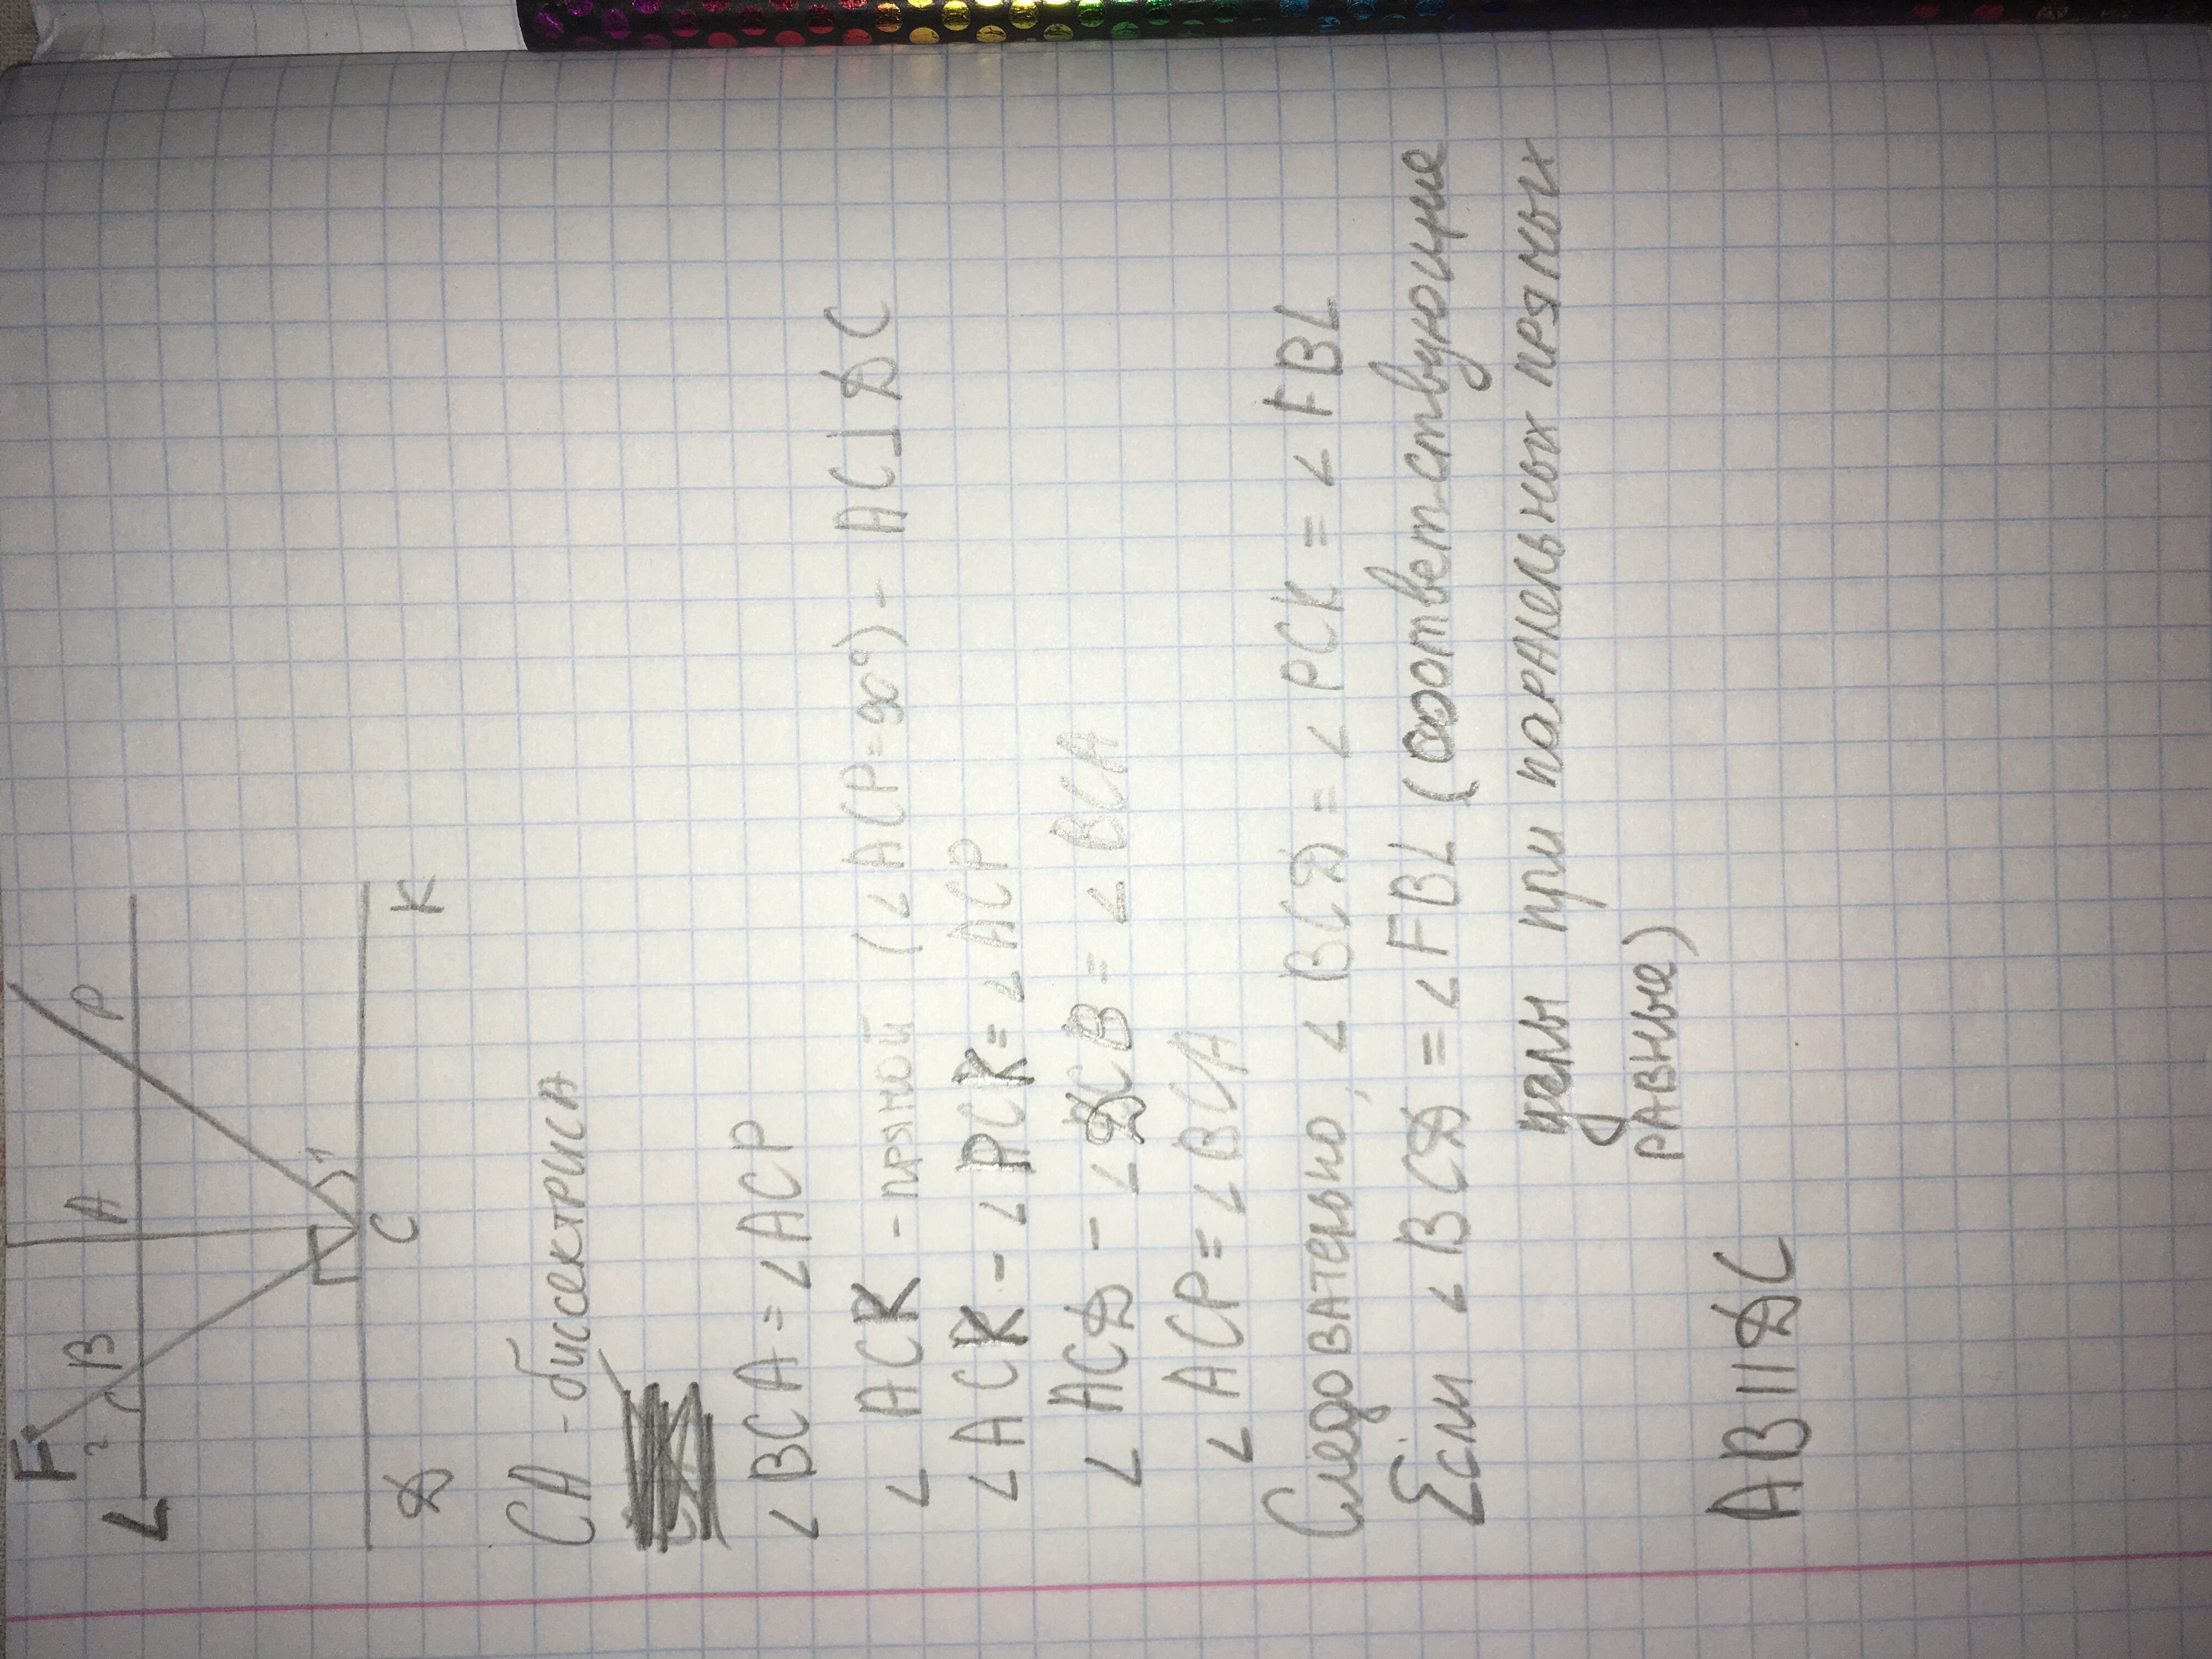 F
L 2 B A P
1
Д C K
CA - биссектриса
∠BCA = ∠ACP
∠ACK - прямой (∠ACP=90°) - AC⊥ДC
∠ACK - ∠PCK = ∠ACP
∠ACД - ∠ДCB = ∠BCA
∠ACP = ∠BCA
Следовательно, ∠BCД = ∠PCK = ∠FBL
Если ∠BCД = ∠FBL (соответствующие
углы при паралельных прямых
равные)
AB||ДC